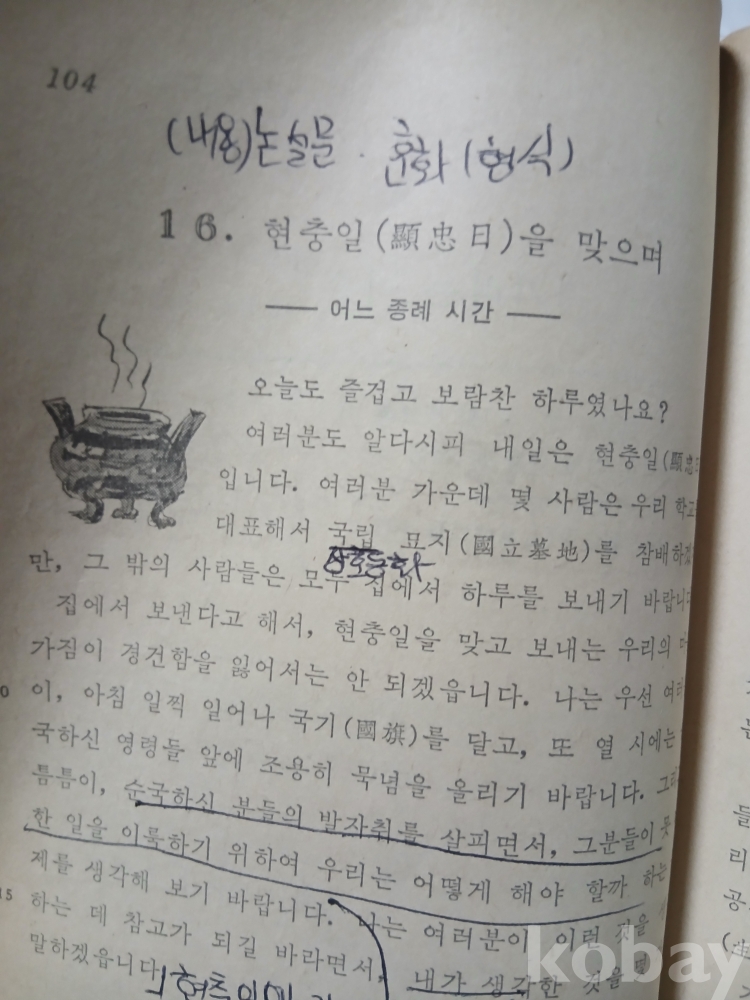 104
(내용)논설문 . 훈화 (형식)
16. 현충일(顯忠日)을 맞으며
어느 종례 시간
오늘도 즐겁고 보람찬 하루였나요?
여러분도 알다시피 내일은 현충일(顯忠
입니다. 여러분 가운데 몇 사람은 우리 학교
대표해서 국립 묘지(國立墓地)를 참배하
만, 그 밖의 사람들은 모두 집에서 하루를 보내기 바랍니
집에서 보낸다고 해서, 현충일을 맞고 보내는 우리의
가짐이 경건함을 잃어서는 안 되겠읍니다. 나는 우선
이, 아침 일찍 일어나 국기(國旗)를 달고, 또 열 시에는
국하신 영령들 앞에 조용히 묵념을 올리기 바랍니다.
틈틈이, 순국하신 분들의 발자취를 살피면서, 그분들이 못
한 일을 이룩하기 위하여 우리는 어떻게 해야 할까 하는
제를 생각해 보기 바랍니다. 나는 여러분이 이런 것을
15
하는 데 참고가 되길 바라면서, 내가 생각한 것을
말하겠읍니다
kobay